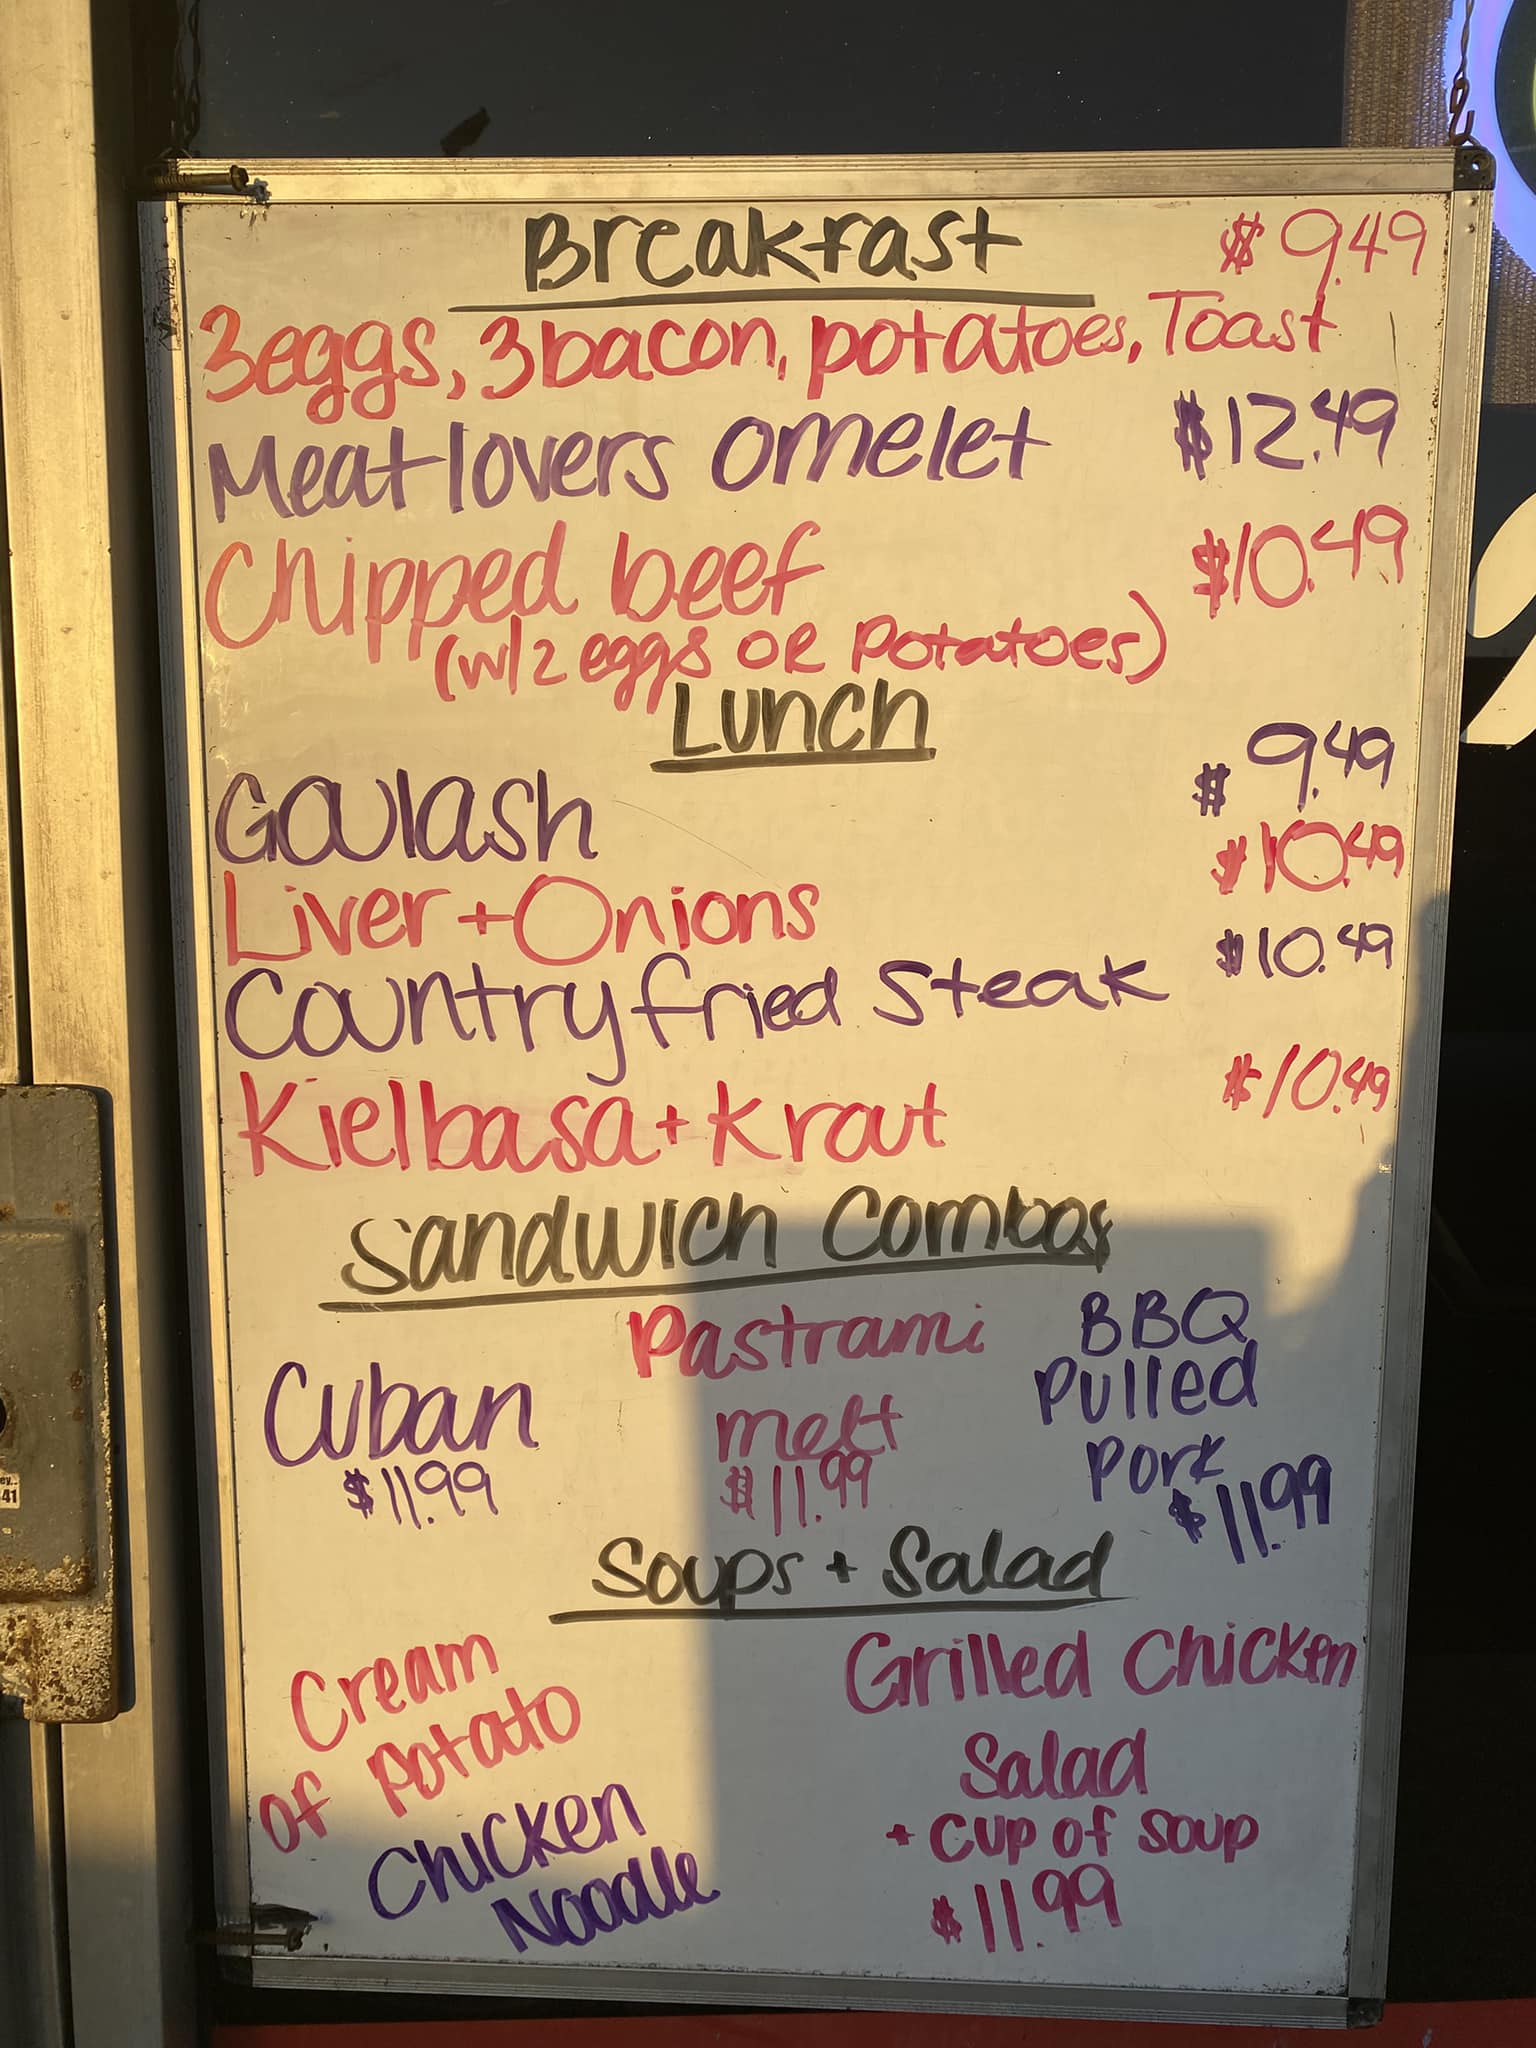 Breakfast $9.49
3eggs, 3bacon, potatoes, Toast
Meatlovers omelet $12.49
Chipped beef $10.49
(w/2 eggs OR Potatoes)
Lunch
Goulash $9.49
Liver + Onions $10.49
Country fried Steak $10.49
Kielbasa + Kraut $10.49
Sandwich Combos
Cuban
$11.99
Pastrami
melt
$11.99
BBQ
Pulled
Pork
$11.99
Soups + Salad
Cream
of Potato
Chicken
Noodle
Grilled Chicken
Salad
+ cup of soup
$11.99